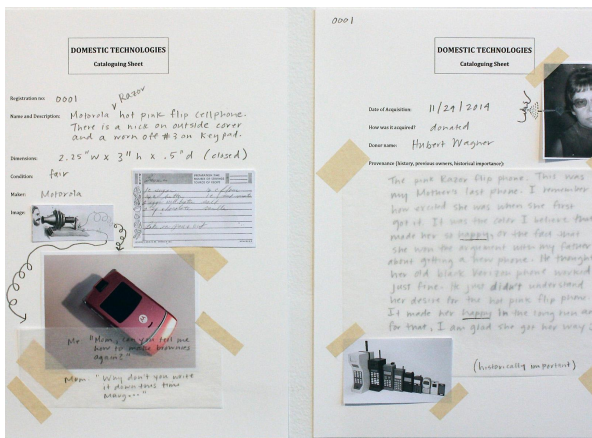 DOMESTIC TECHNOLOGIES
Cataloguing Sheet
Registration no: 0001
Razor
Name and Description: Motorola hot pink flip cellphone.
There is a nick on outside cover
and a worn off #3 on keypad.
Dimensions: 2.25"w x 3"h x .5"d (closed)
Condition: fair
Maker: Motorola
Image:
Me: "Mom, can you tell me
how to make brownies
again?"
Mom: "Why don't you write
it down this time
0001
DOMESTIC TECHNOLOGIES
Cataloguing Sheet
Date of Acquisition: 11/29/2014
How was it acquired? donated
Donor name: Hubert Wagner
Provenance (history, previous owners, historical importance):
The pink Razor flip phone. This was
my Mother's last phone. I remember
how excited she was when she first
got it. It was the color I believe that
made her so happy, or the fact that
she won the argument with my father
about getting a new phone. He thought
her old black Verizon phone worked
just fine. He just didn't understand
her desire for the hot pink flip phone.
It made her happy in the long run and
for that, I am glad she got her way.
(historically important)